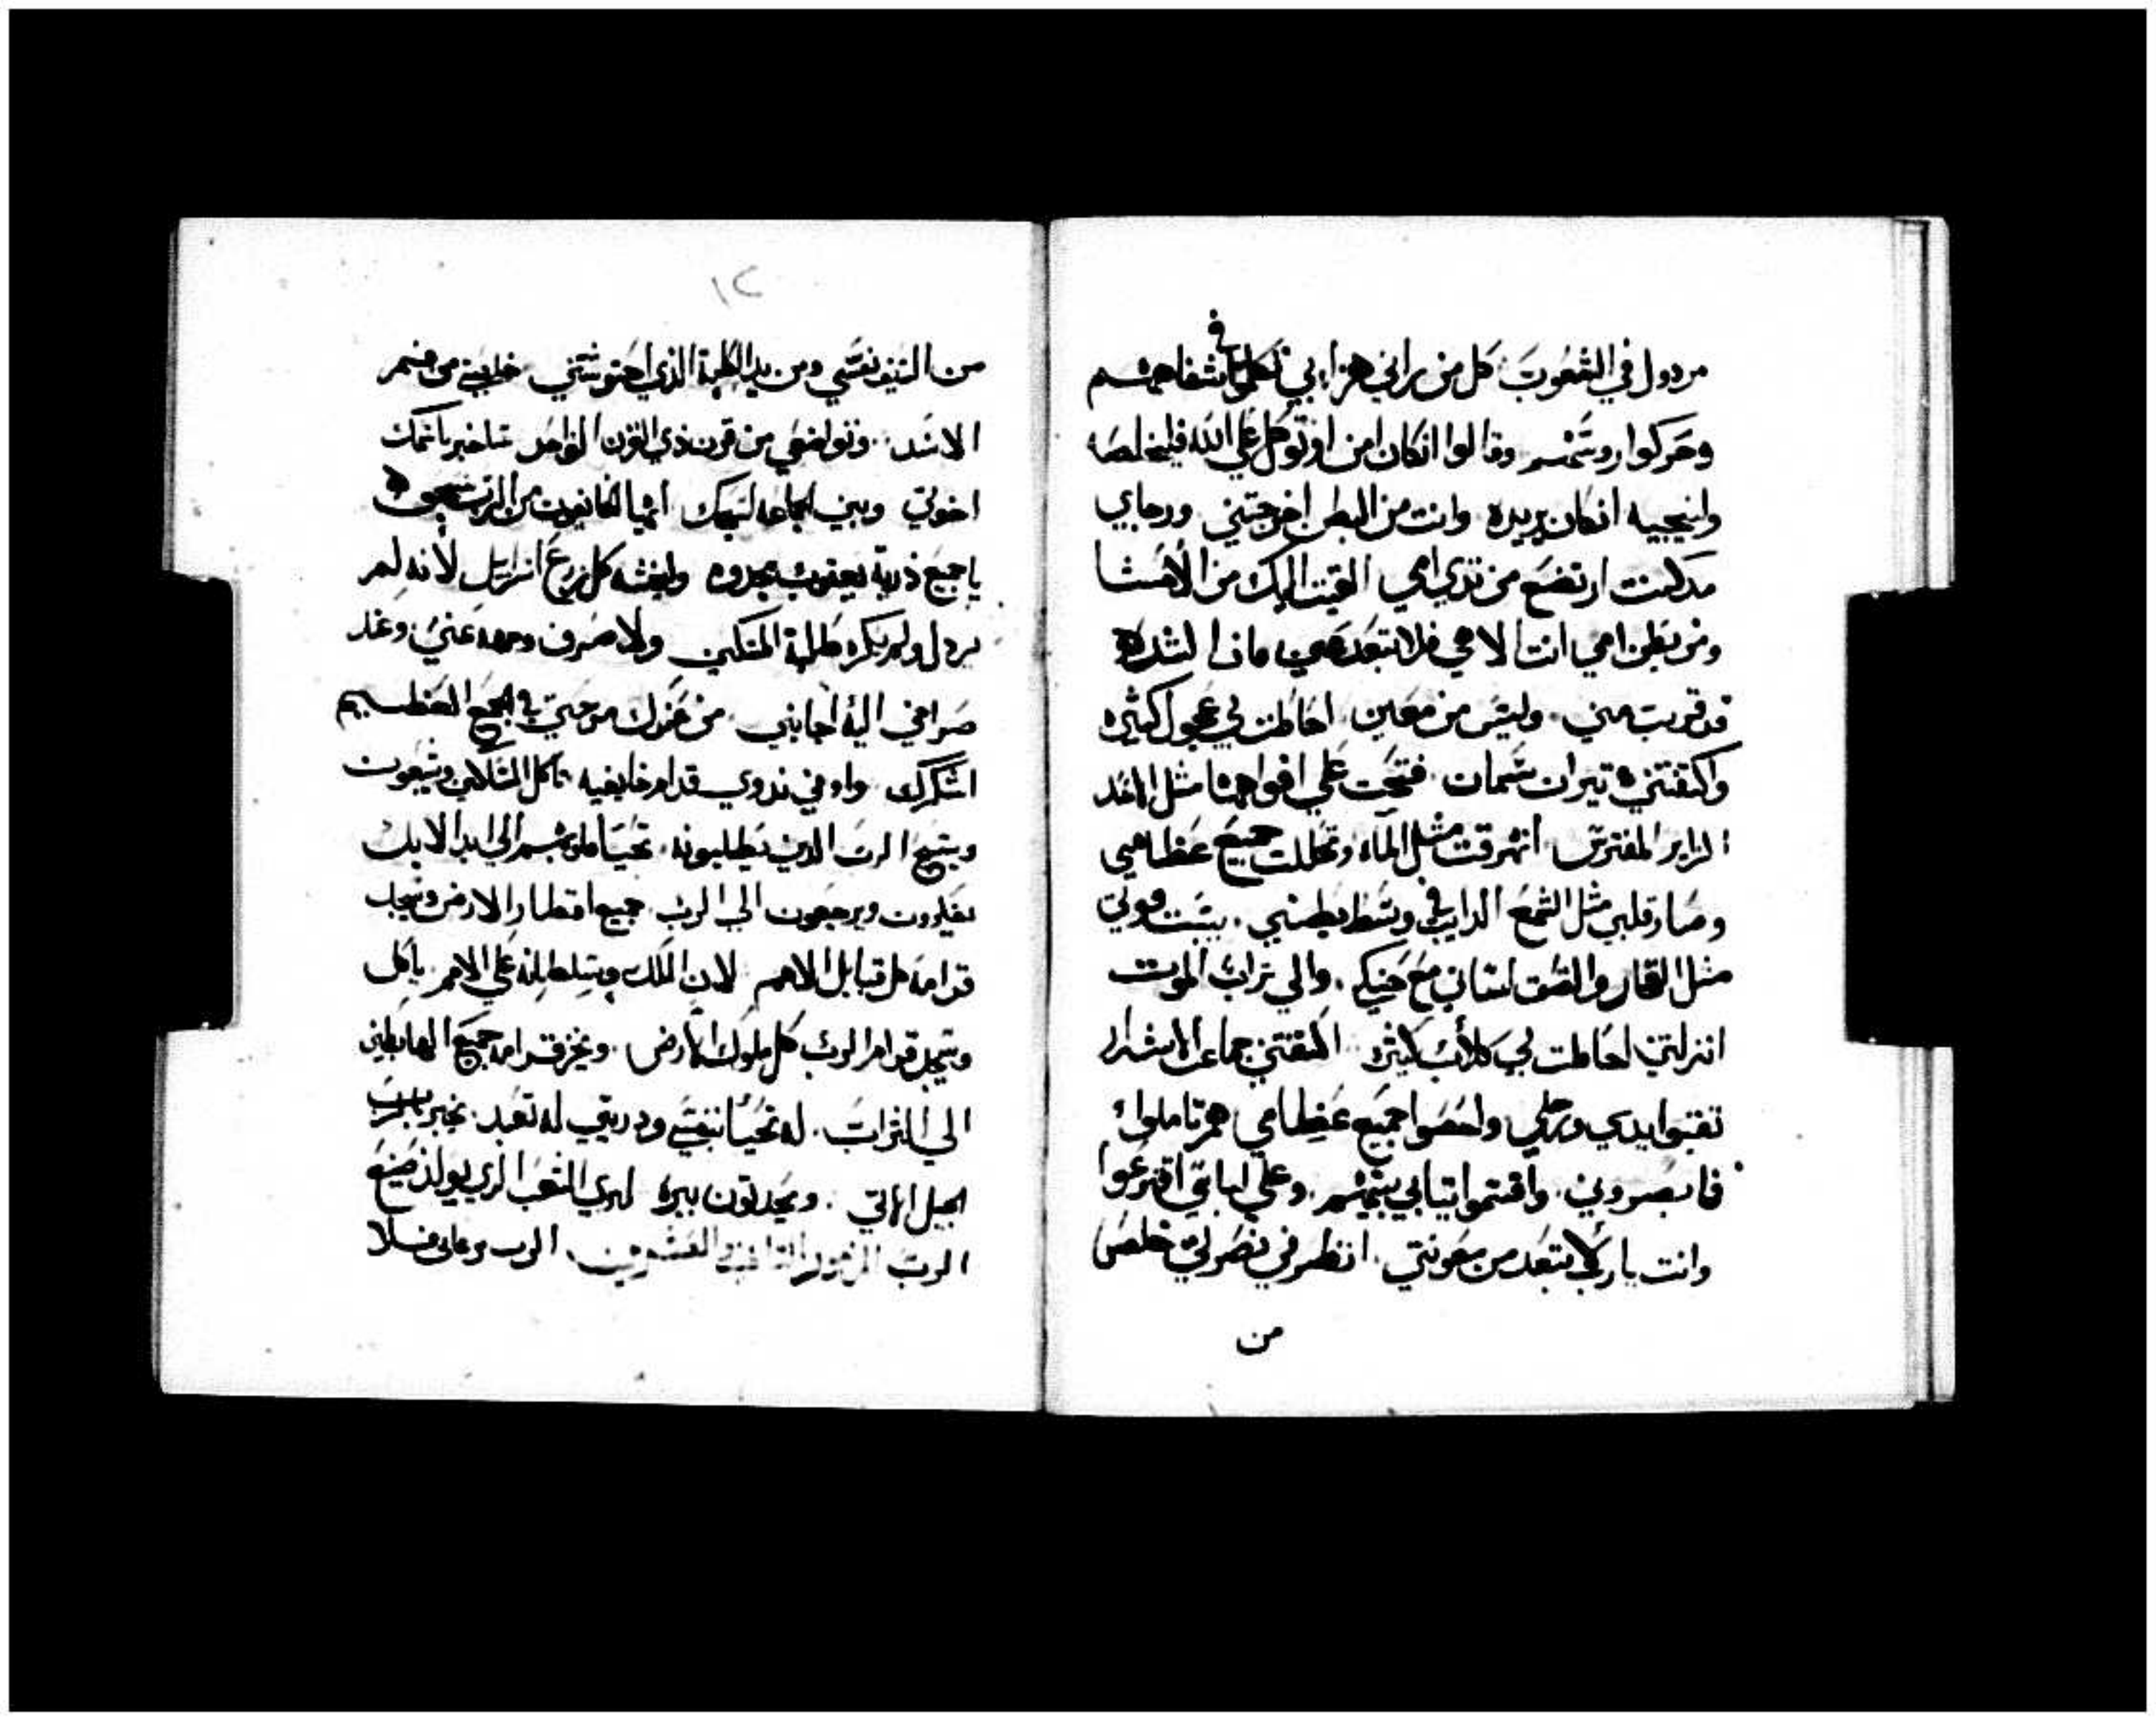 مردول في الشعوب كل من يراني هزا بي تكلموا في شفاههم
وحركوا روسهم وقالوا انكان امن او توكل علي الله فليخلصه
ولينجيه انكان يريده وانت من البطن اخرجتني ورجاي
مدكنت ارتضع من تدي امي القيت اليك من الاحشا
ومن بطن امي انت الاهي فلا تبعد عني فان الشده
قد قربت مني وليس من معين احاطت بي عجول كثيره
واكتنفتني تيران سمان فتحت علي افواهها مثل الاسد
الزاير المفترس انهرقت مثل الماء وتحللت جميع عظامي
وصار قلبي مثل الشمع الدايب في وسط بطني يبست قوتي
مثل الفخار والتصق لساني مع حنكي والي تراب الموت
انزلتني احاطت بي كلاب كثيره اكتنفتني جماعة الاشرار
تقبوا يدي ورجلي واحصوا جميع عظامي هم تاملوا
فابصروني واقتسموا تيابي بينهم وعلي لباسي اقترعوا
وانت يا رب لا تبعد من معونتي انظر في نصرتي خلص
من
١٢
من السيف نفسي ومن يد الكلبة الذي احتوشتني خلصني من فم
الاسد وتواضعي من قرن ذي القرن الواحد ساخبر باسمك
اخوتي وبين الجماعه اسبحك ايها الخايفون من الرب سبحوه
يا جميع ذرية يعقوب مجدوه وليخشه كل زرع اسراييل لانه لم
يردل ولم يكره طلبة المسكين ولا صرف وجهه عني وعند
صراخي اليه اجابني من عندك مدحتي في الجمع العظيم
اشكرك واوفي ندوري قدام خايفيه تاكل المساكين ويشبعون
ويسبح الرب الدين يطلبونه تحيا قلوبهم الي ابد الابد
يفكرون ويرجعون الي الرب جميع اقطار الارض ويسجد
قدامه كل قبايل الامم لان الملك وسلطانه علي الامم ياكل
ويسجد قدام الرب كل ملوك الارض ويخر قدامه جميع الهابطين
الي التراب له تحيا نفسي ودريتي له تعبد يخبر بالرب
الجيل الاتي ويحدثون ببره لدي الشعب الذي يولد صنع
الرب المزمور التاني والعشرون الرب يرعاني فلا